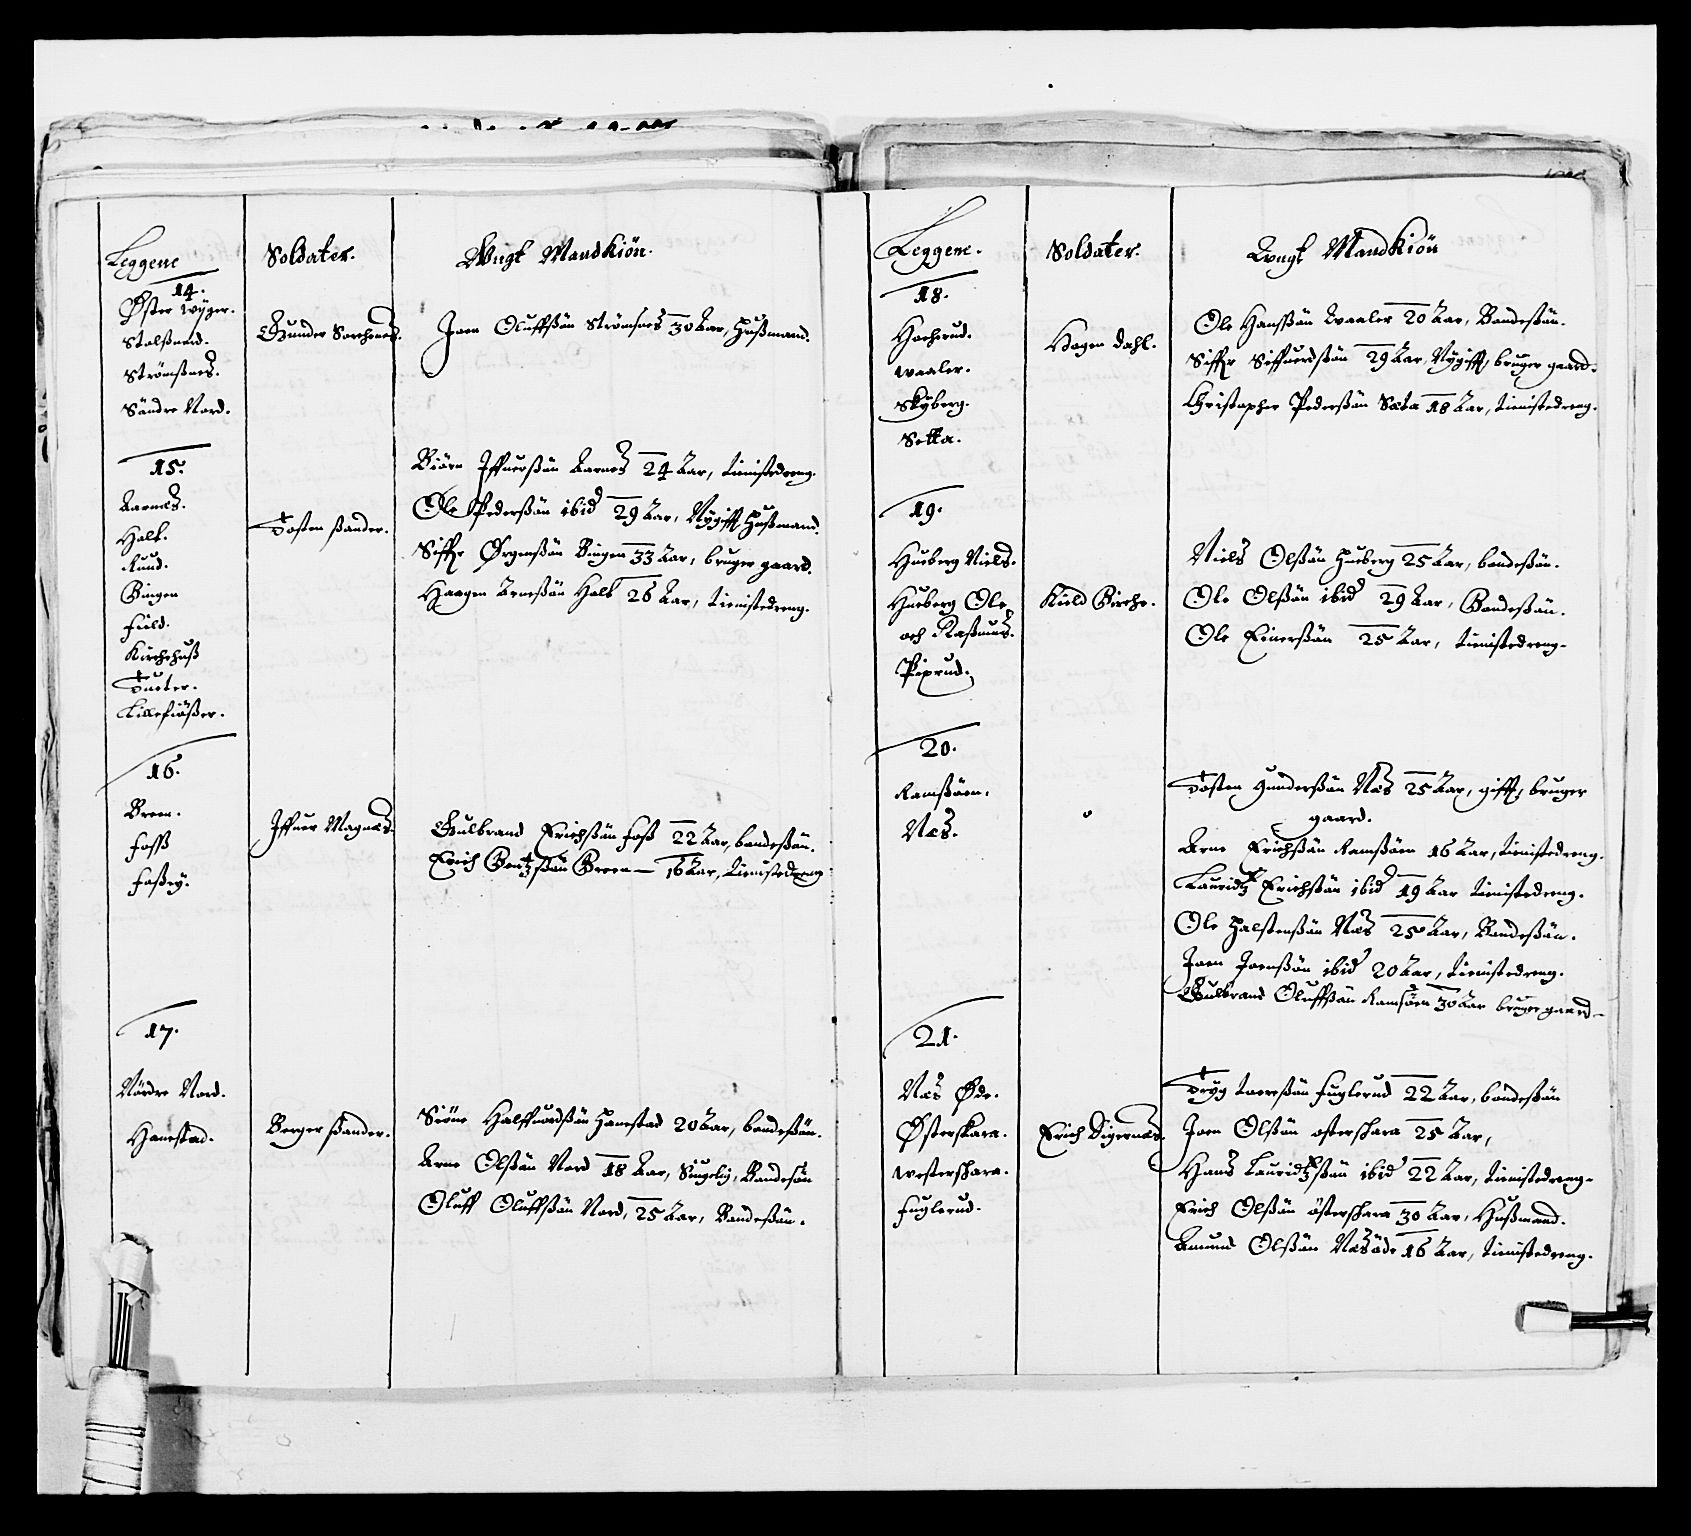 Leggene
Soldater.
Vngt Mandkiön.
14.
Öster Wÿger.
Stalsnerd.
Strömsnes.
Söndre Nord.
Gunder
Joen Oluffsön Strömsnes 30 Aar, Husmand.
15.
Aarnæs.
Halt.
Rund.
Bingen
Fiild.
Kirchehus
Tueter.
Lillefiösser.
Tosten Sander.
Biörn Iffuersön Aarnes 24 Aar, tienistedreng.
Ole Pedersön ibid 29 Aar, Nÿgifft Husmand.
Siffr Örgensön Bingen 33 Aar, bruger gaard.
Haagen Arnesön Halt 26 Aar, tienistedreng.
16.
Breen.
Foss
Fossrÿ.
Iffuer Magnæs.
Gulbrand Erichsön Foss 22 Aar, bondesön.
Erich Bentzsön Breen 16 Aar, tienistedreng
17.
Nördre Nord.
Hanestad.
Berger Sander.
Sröne Halffuordsön Hanestad 20 Aar, bondesön.
Arne Olsön Nord 18 Aar, Bondesön
Oluff Oluffsön Nord, 25 Aar, Bondesön.
Leggene.
Soldater.
Vngt Mandkiön
18.
Hocherud.
Waaler.
Skÿberg.
Setta.
Hagen Dahl.
Ole Hanssön Waaler 20 Aar, Bondesön.
Siffr Siffuerdsön 29 Aar, Nÿgifft, bruger gaard.
Christopher Pedersön Sæta 18 Aar, tienistedreng.
19.
Hueberg Niels.
Hueberg Ole
och Rasmus.
Piprud.
Kield Birche.
Niels Olsön Hueberg 25 Aar, bondesön.
Ole Olsön ibid 29 Aar, Bondesön.
Ole Einersön 25 Aar, tienistedreng.
20.
Ramsöen.
Næs.
0
Tosten Gundersön Næs 25 Aar, gifft, bruger
gaard.
Arne Erichsön Ramsöen 16 Aar, tienistedreng.
Lauridtz Erichsön ibid 19 Aar tienistedreng.
Ole Halstensön Næs 25 Aar, Bondesön.
Joen Joensön ibid 20 Aar, tienistedreng.
Gulbrand Oluffsön Ramsöen 30 Aar bruger gaard
21.
Næs Öde.
Österskara.
Westerskara.
Fuglerud.
Erich Digernæs.
Trÿg toeresön Fuglerud 22 Aar, bondesön
Joen Olsön osterskara 25 Aar,
Hans Lauridtzsön ibid 22 Aar, tienistedreng.
Erich Olsön österskara 30 Aar, Husmand.
Amund Olsön Næsöde 16 Aar, tienistedreng.